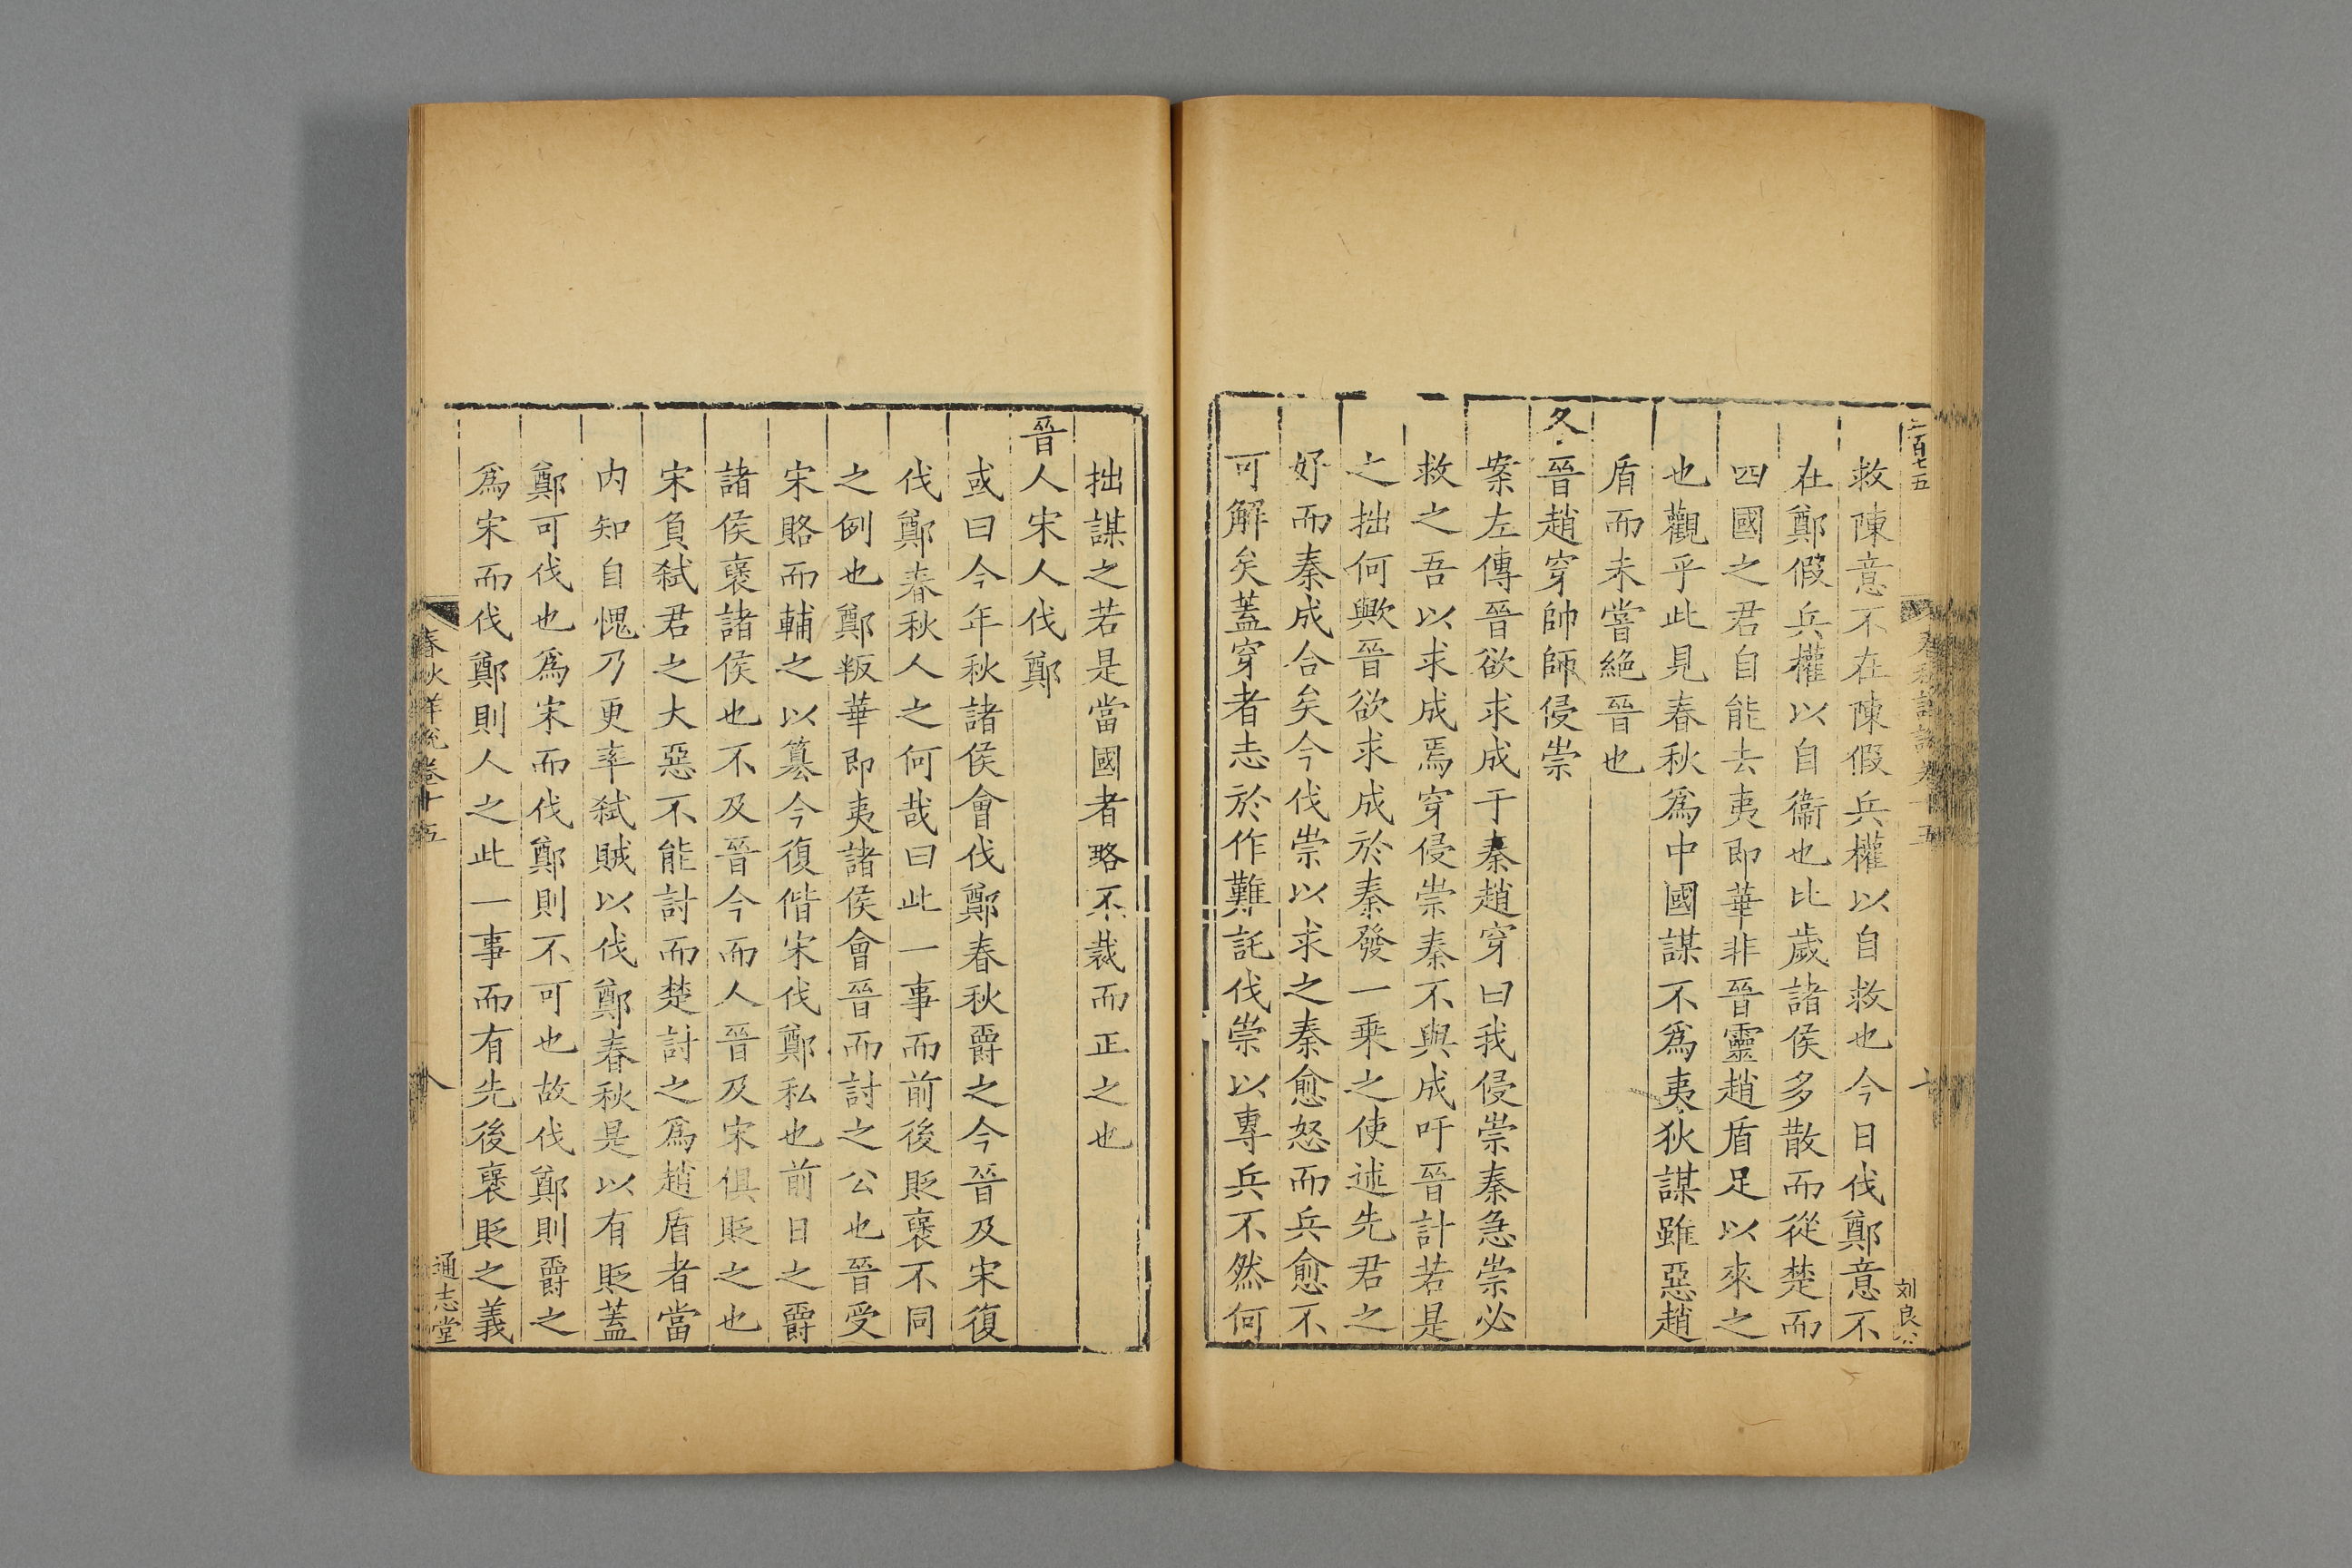 二百七五
救陳意不在陳假兵權以自救也今日伐鄭意不
在鄭假兵權以自衞也比歲諸侯多散而從楚而
四國之君自能去夷即華非晉靈趙盾足以來之
也觀乎此見春秋爲中國謀不爲夷狄謀雖惡趙
盾而未嘗絶晉也
冬晉趙穿帥師侵崇
案左傳晉欲求成于秦趙穿曰我侵崇秦急崇必
救之吾以求成焉穿侵崇秦不與成吁晉計若是
之拙何歟晉欲求成於秦發一乘之使述先君之
好而秦成合矣今伐崇以求之秦愈怒而兵愈不
可解矣蓋穿者志於作難託伐崇以專兵不然何
拙謀之若是當國者略不裁而正之也
晉人宋人伐鄭
或曰今年秋諸侯會伐鄭春秋爵之今晉及宋復
伐鄭春秋人之何哉曰此一事而前後貶褒不同
之例也鄭叛華即夷諸侯會晉而討之公也晉受
宋賂而輔之以簒今復偕宋伐鄭私也前日之爵
諸侯褒諸侯也不及晉今而人晉及宋俱貶之也
宋負弑君之大惡不能討而楚討之爲趙盾者當
内知自愧乃更率弑賊以伐鄭春秋是以有貶蓋
鄭可伐也爲宋而伐鄭則不可也故伐鄭則爵之
爲宋而伐鄭則人之此一事而有先後褒貶之義
春秋詳說卷十五
八
通志堂